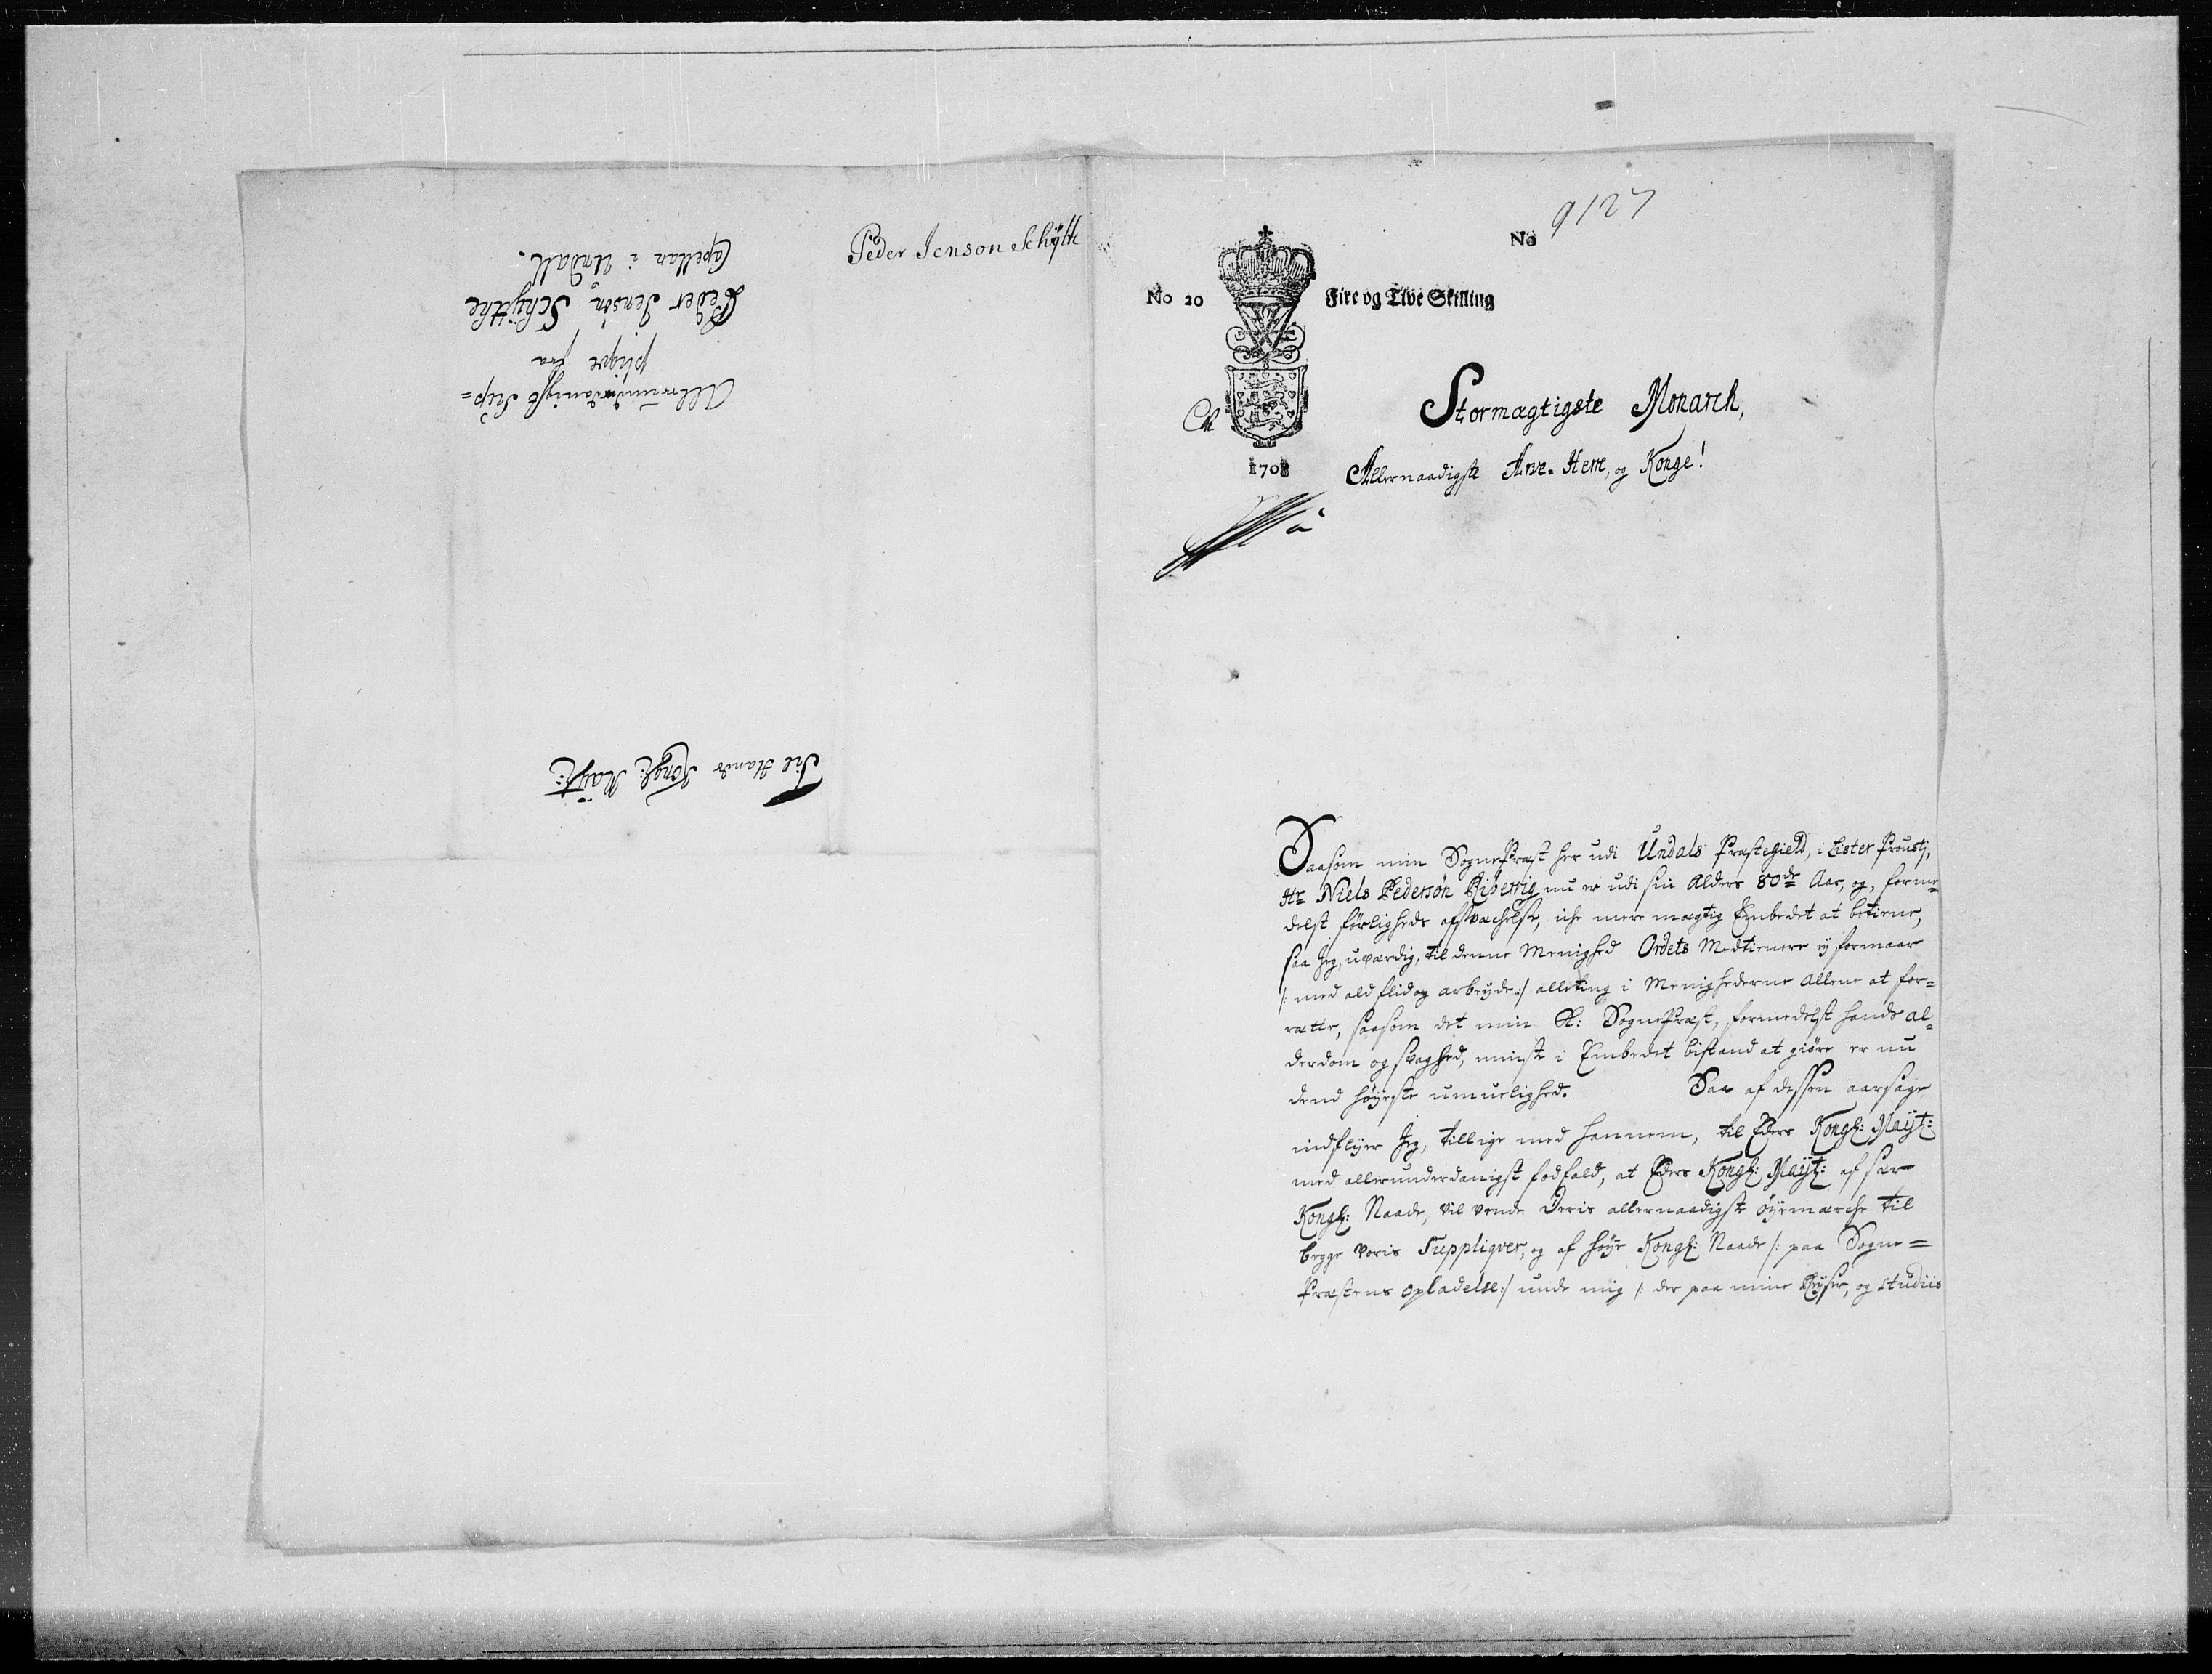 Peder Jenson Schÿtte
Allerunderdanigst Sup=
pliqve fra
Peder Jensøn Schÿthe
Capellan i Undall.
Til Hands Kongl: Maÿt:
No 9127
No 20
Fire og Tive Skilling
1708
Stormagtigste Monarch,
Allernaadigste Arve-Herre, og Konge!
Saasom min SognePræst her udi Undals Præstegield, i Lister Proustj,
Hr Niels Pedersøn Riberrig nu er udi sin Alders 80de Aar, og, forme=
delst førligheds afsvæchelse, iche mere mægtig Embedet at betiene,
saa Jeg, uværdig, til denne Menighed Ordets Medtienere ej formaar
/: med all flid og arbeyde :/ alleting i Menighederne allene at for=
rætte, saasom det min S: SognePræst, formedelst hands al=
derdom og svaghed, minste i Embedet bistand at giøre er nu
dend høyeste umuelighed. Saa af dessen aarsage
indflyer Jeg, tillige med hannem, til Eders Kongl: Maÿt:
med allerunderdanigst fodfald, at Eders Kongl: Maÿt: af sær
Kongl: Naade, vil vende Deris allernaadigste øyemærche til
begge voris Suppliqver, og af høye Kongl: Naade /: paa Sogne=
Præstens opladelse :/ unde mig /: der paa mine Reyser, og studiis